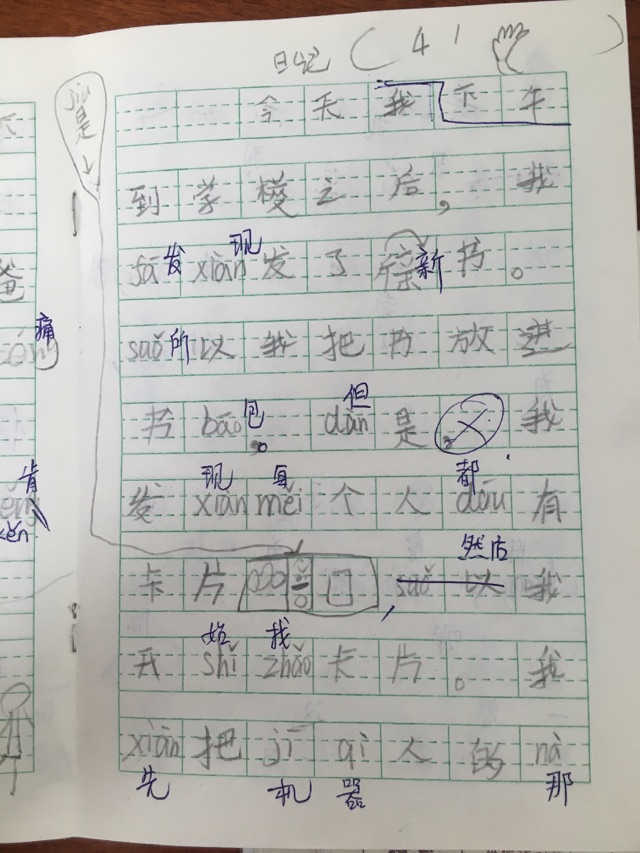 日记 ( 4 )
jiù是
今天我下午
到学校之后，我
fā发xiàn现发了新书。
suǒ所以我把书放进
书bāo包。dàn但是我
发xiàn现měi每个人dōu都有
卡片，suǒ以然后我
开shǐ始zhǎo找卡片。我
xiān先把jī机qì器人的nà那
痛
肯
kěn